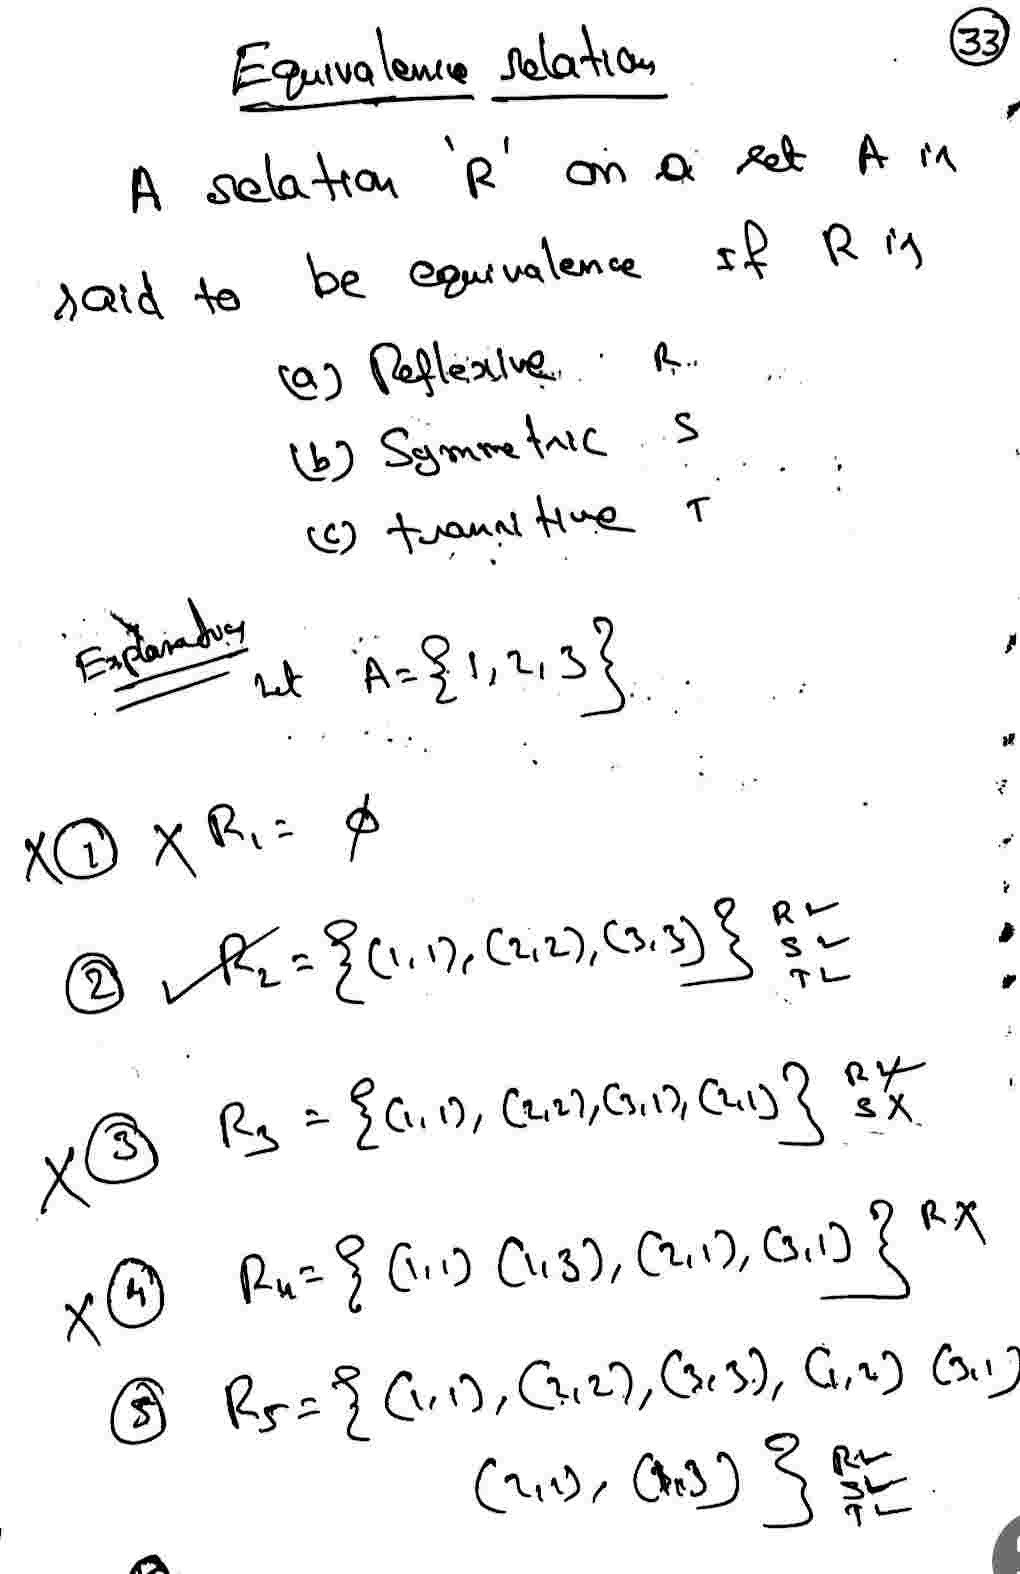 33
Equivalence relation
A relation 'R' on a set A is
said to be equivalence if R is
(a) Reflexive R
(b) Symmetric S
(c) transitive T
Let A={1,2,3}
X ① X R₁ = ϕ
② ✓ R₂ = {(1,1), (2,2), (3,3)} R✓
S✓
T✓
X ③ R₃ = {(1,1), (2,2), (3,1), (2,1)} R
S X
X ④ R₄ = {(1,1) (1,3), (2,1), (3,1)} R X
⑤ R₅ = {(1,1), (2,2), (3,3), (1,2) (3,1)
(2,1), (1,3)} R✓
S✓
T✓